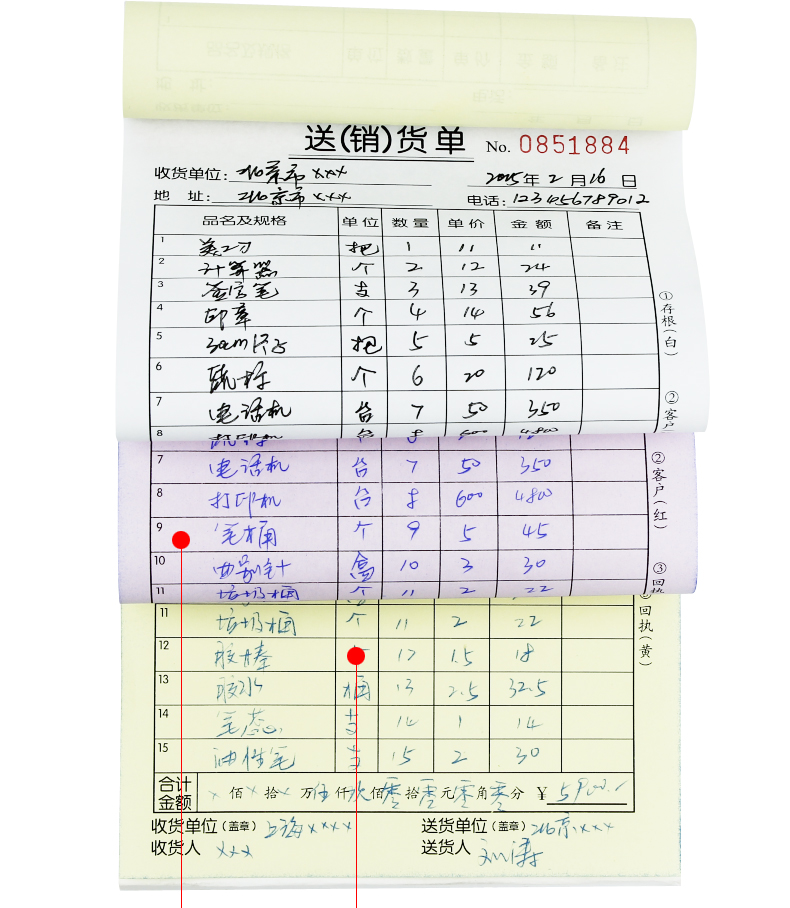 送(销)货单 No. 0851884
收货单位: 北京市xxx 2015年2月16日
地 址: 北京市xxx 电话: 123456789012
品名及规格 单位 数量 单价 金额 备注
1 美工刀 把 1 11 11
2 计算器 个 2 12 24
3 签字笔 支 3 13 39
4 印章 个 4 14 56
5 30cm尺子 把 5 5 25
6 个 6 20 120
7 电话机 台 7 50 350
8 打印机 台 8 600 4800
①存根(白)
②客户
7 电话机 台 7 50 350
8 打印机 台 8 600 4800
9 笔桶 个 9 5 45
10 曲别针 盒 10 3 30
11 垃圾桶 个 11 2 22
②客户(红)
③回执
11 垃圾桶 个 11 2 22
12 胶棒 12 1.5 18
13 胶水 桶 13 2.5 32.5
14 笔芯 支 14 1 14
15 油性笔 支 15 2 30
③回执(黄)
合计金额 x佰x拾x万伍仟玖佰零拾零元零角零分 ¥ 5900.-
收货单位(盖章) 上海xxxx 送货单位(盖章) 北京xxx
收货人 xxx 送货人 刘涛